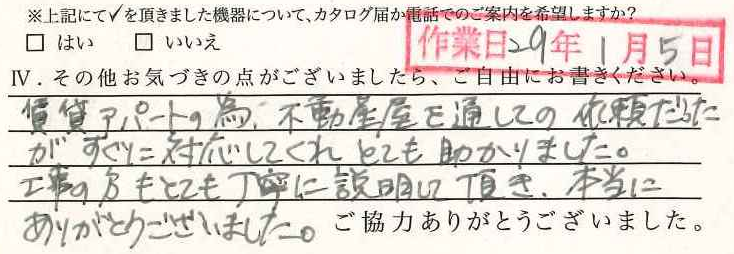 ※上記にて✓を頂きました機器について、カタログ届か電話でのご案内を希望しますか?
□ はい □ いいえ
作業日29年1月5日
Ⅳ．その他お気づきの点がございましたら、ご自由にお書きください。
賃貸アパートの為、不動産屋を通しての依頼だった
がすぐに対応してくれとても助かりました。
工事の方もとても丁寧に説明して頂き、本当に
ありがとうございました。ご協力ありがとうございました。